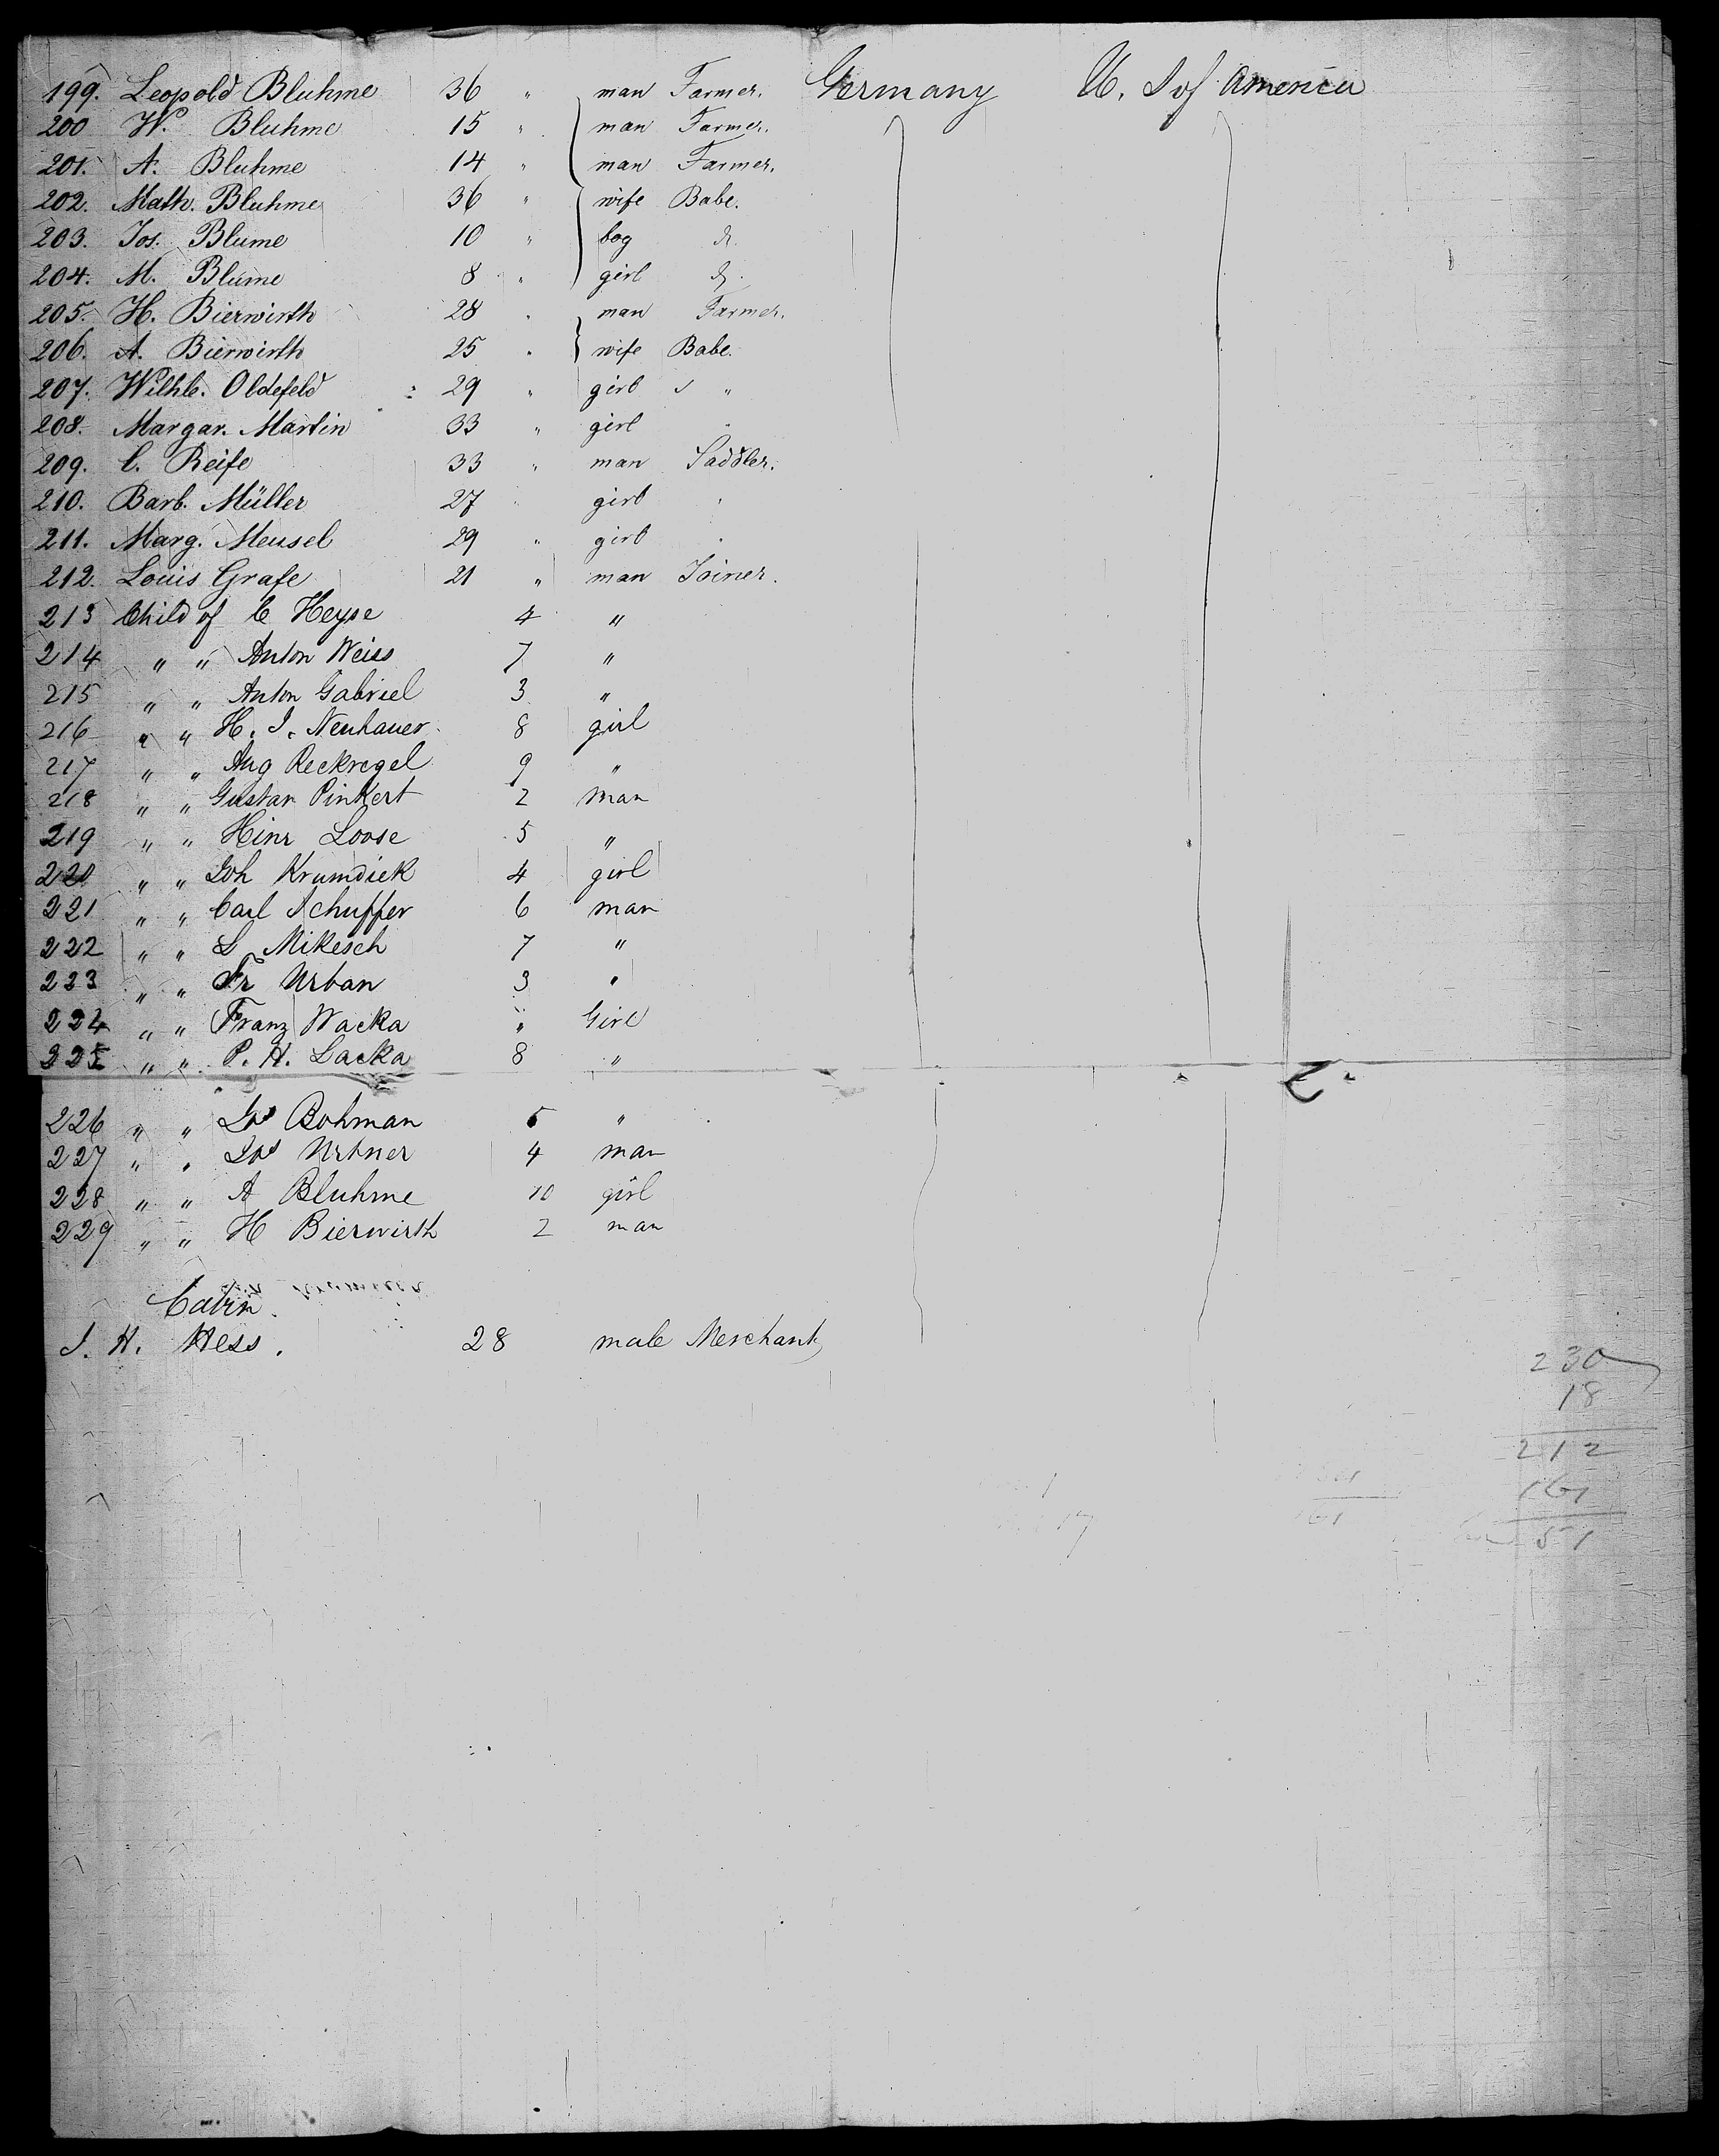 199. Leopold Bluhme 36 " man Farmer. Germany U. S of America
200 W. Bluhme 15 " man Farmer.
201. A. Bluhme 14 " man Farmer.
202. Math. Bluhme 36 " wife Babe.
203. Jos. Blume 10 " boy
204. M. Blume 8 " girl
205. H. Bierwirth 28 " man Farmer.
206. A. Bierwirth 25 " wife Babe.
207. Wilhle. Oldefeld 29 " girl "
208. Margar. Martin 33 " girl "
209. C. Reife 33 " man Saddler.
210. Barb. Müller 27 " girl "
211. Marg. Meusel 29 " girl "
212. Louis Grafe 21 " man Joiner.
213 Child of C Heyse 4 "
214 " " Anton Weiss 7 "
215 " " Anton Gabriel 3 "
216 " " H. J. Neuhauer 8 girl
217 " " Aug Reckregel 9 "
218 " " Gustav Pinkert 2 man
219 " " Hinr Loose 5 "
220 " " Joh Krumdiek 4 girl
221 " " Carl Schuffer 6 man
222 " " L Mikesch 7 "
223 " " Fr Urban 3 "
224 " " Franz Wacka " Girl
225 " " P. H. Lacka 8 "
226 " " Jos Bohman 5 "
227 " " Jos Urbner 4 man
228 " " A Bluhme 10 girl
229 " " H Bierwirth 2 man
Cabin.
J. H. Hess. 28 male Merchant
230
18
212
161
51